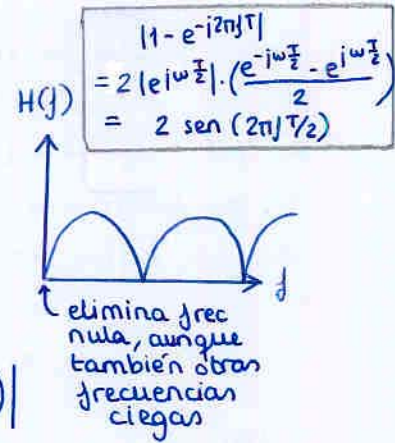 |1 - e^-j2πfT|
= 2 |e^jω T/2| · (e^-jω T/2 - e^jω T/2 / 2)
= 2 sen (2πf T/2)
H(f)
f
elimina frec
nula, aunque
también otras
frecuencias
ciegas
)|